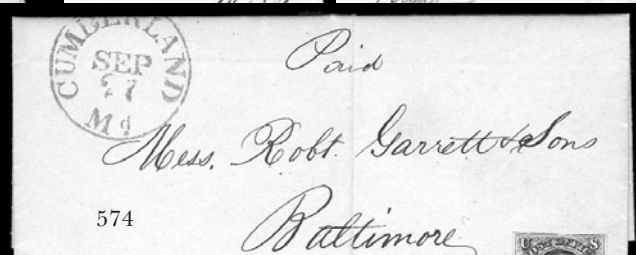 CUMBERLAND
SEP
27
Md
Paid
Mess. Robt. Garrett & Sons
574
Baltimore
U POST OFFICE S